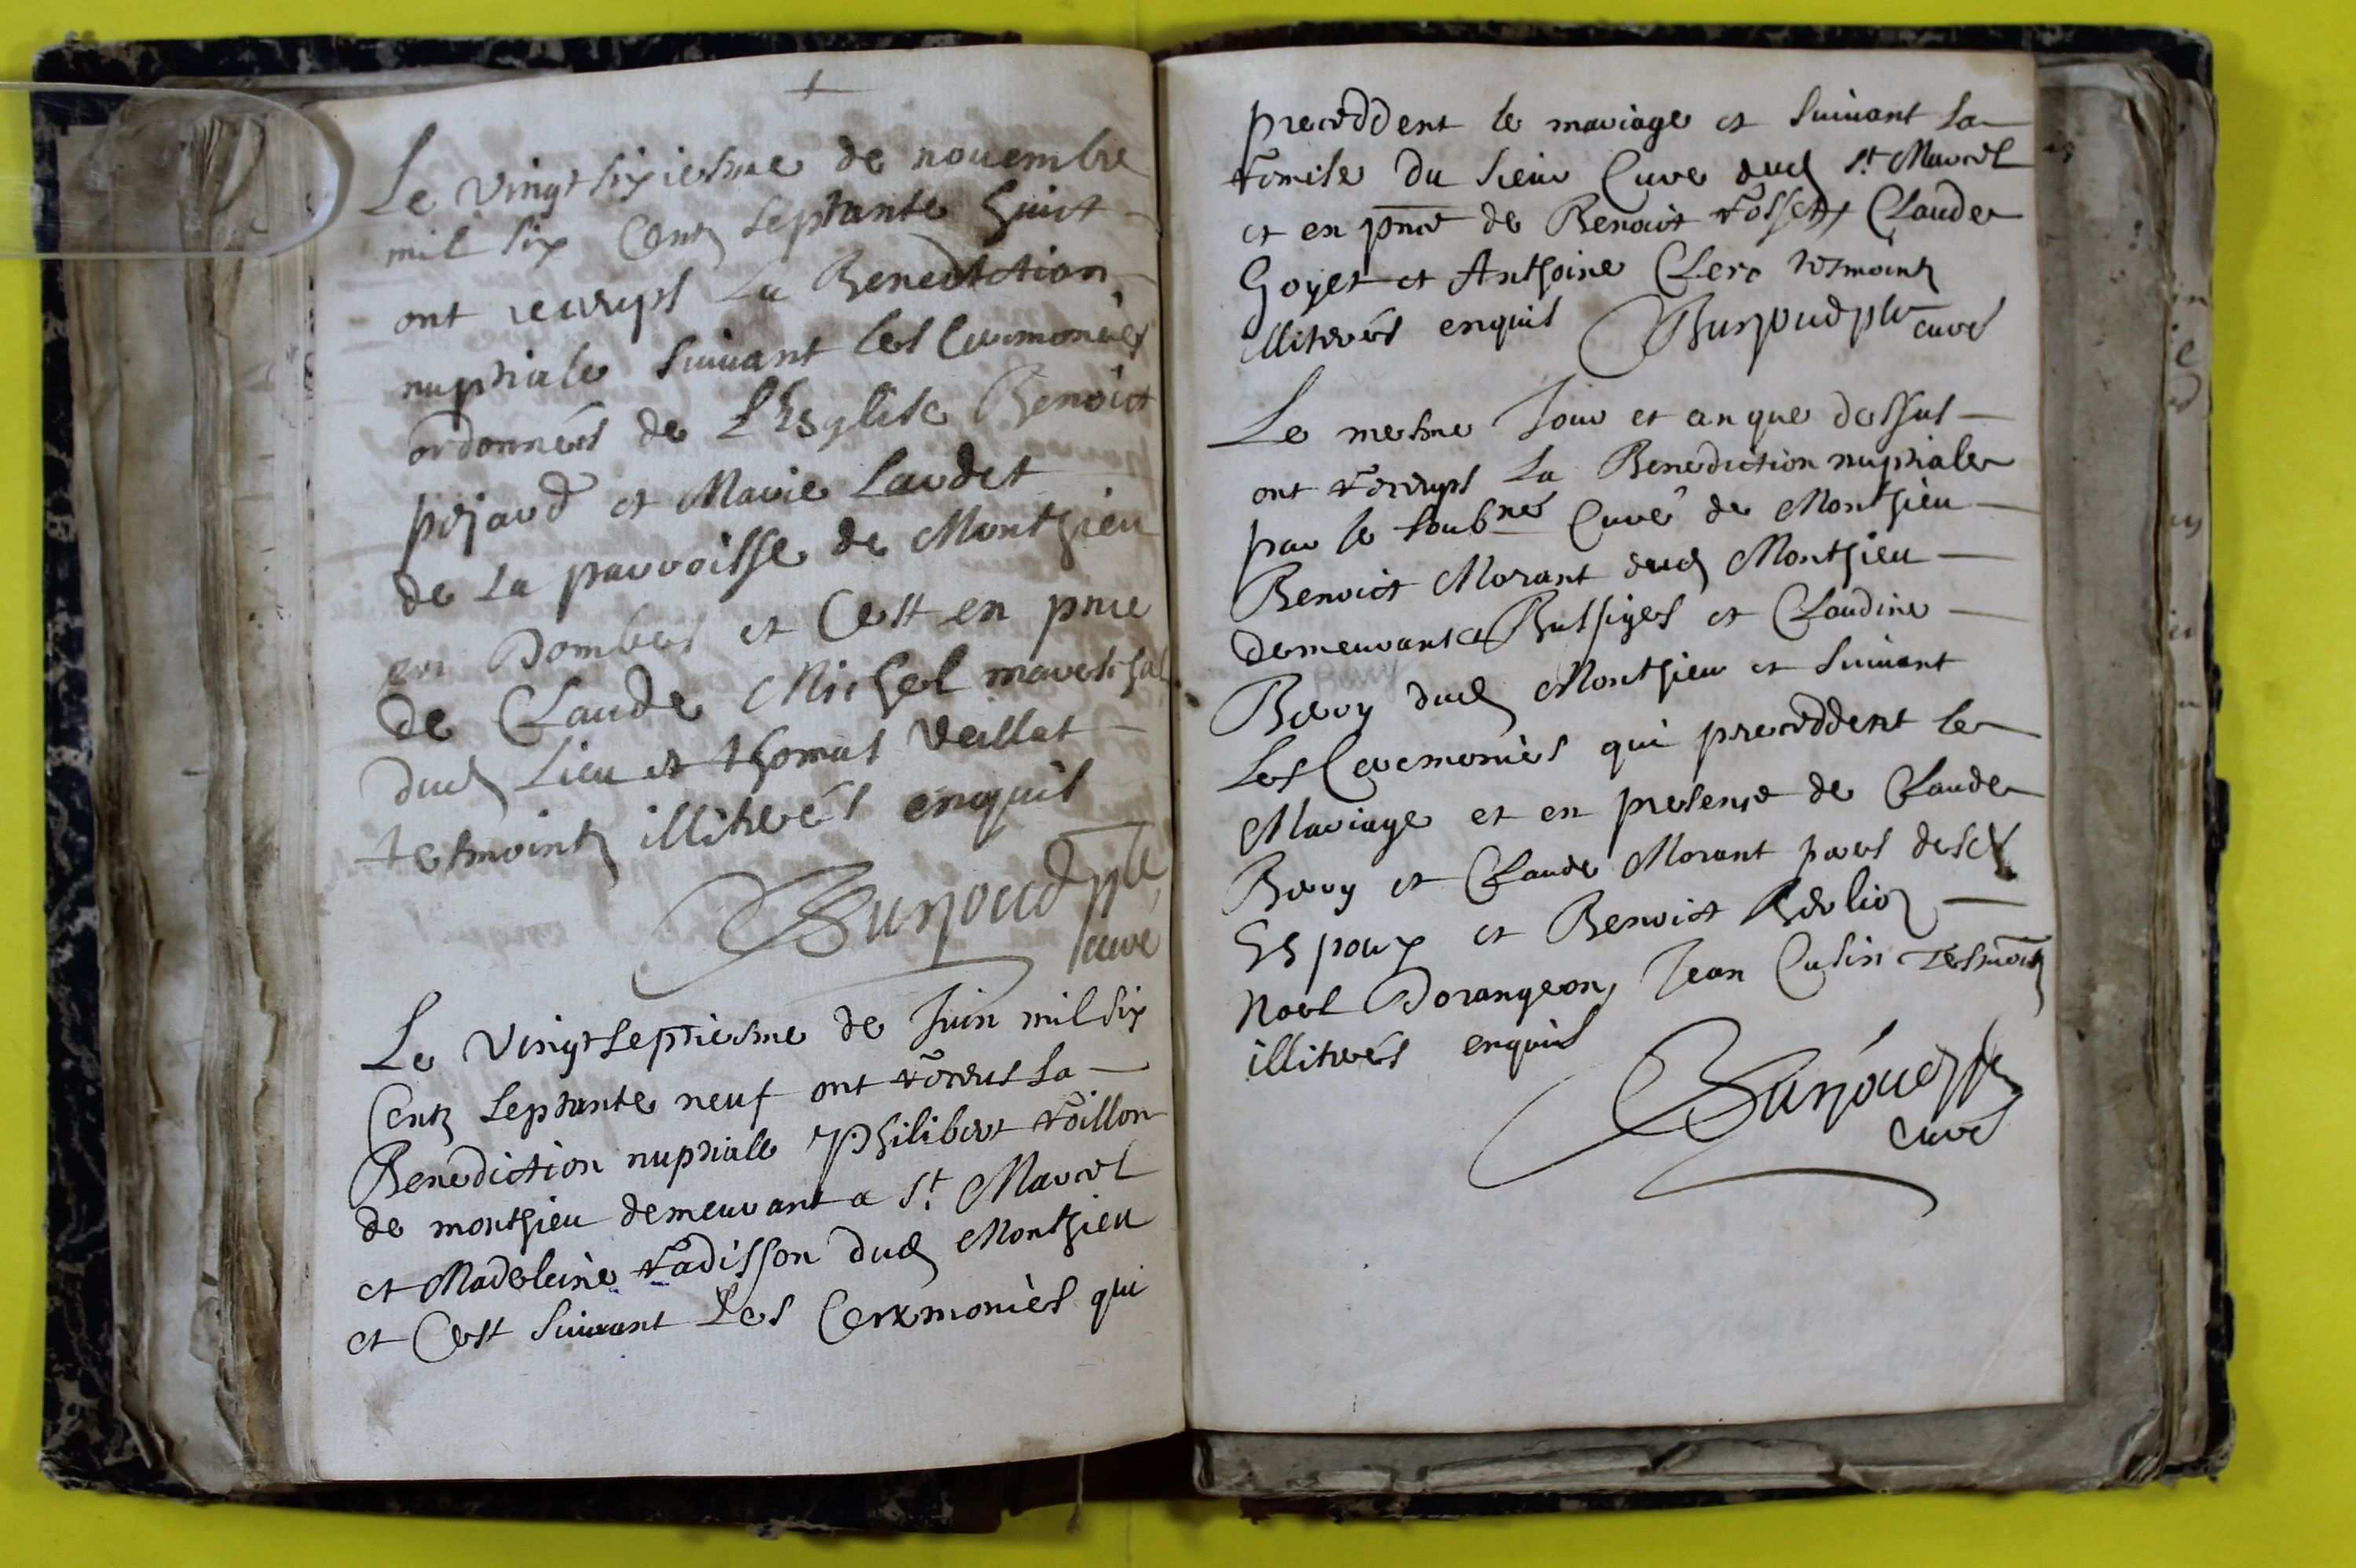 Le vingt sixiesme de nouembre
mil six Centz septante huict
ont receups La Benediction
nuptiale suiuant les Ceremoniès
ordonnéés de L'Esglise Benoict
pejard et Marie Lardet
de La parroisse de Monthieu
en Dombes et Cest en pnce
de Claude Michel mareschal
dud Lieu et thomas Veillat
tesmointz illiteréés enquis
Burjoud ptre
curé
Le vingt septiesme de Juin mil six
Centz septante neuf ont receus La
Benediction nuptialle Philibert roillon
de monthieu demeurant a St Marcel
et Madeleine radisson dud Monthieu
et Cest suiuant Les Ceremoniès qui
preceddent le mariage et suiuant La
remise du sieur Curé dud St Marcel
et en pnce de Benoict rosset, Claude
Goyet et Anthoine Clerc tesmointz
illiteréés enquis Burjoud ptre curé
Le mesme Jour et an que dessus
ont receups La Benediction nuptiale
par le soubnés Curé de Monthieu
Benoict Morant dud Monthieu
demeurant a Bussiges et Claudine
Berry dud Monthieu et suiuant
Les Ceremoniès qui preceddent le
Mariage et en presence de Claude
Berry et Claude Morant peres desd
Espoux et Benoict Berlioz
Noel Dorangeon, Jean Cusin Tesmointz
illiteréés enquis
Burjoud ptre
curé